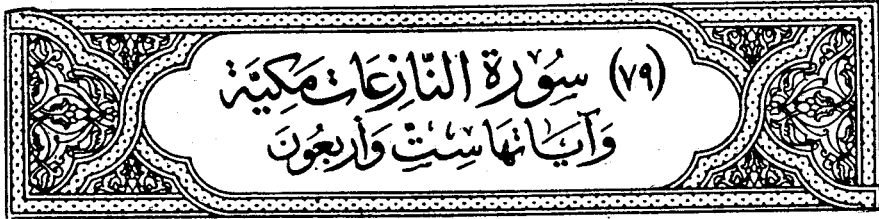 (٧٩) سُورَة النَّازِعَات مَكِيَّة
وَآيَاتهَا سِتّ وَأَرْبَعُونَ